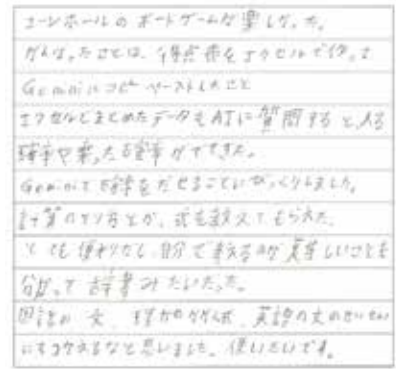 コーンホールのボードゲームが楽しかった。
がんばったことは、得点表をエクセルで作って
Geminiにコピーペーストしたこと
エクセルでまとめたデータをAIに質問すると、入る
確率や乗った確率がでてきた。
Geminiで確率をだせることにびっくりしました。
計算のやり方とか、式を教えてもらえた。
とても便利だし、自分で考えるのが難しいことも
分かって辞書みたいだった。
国語の文、理科の 英語の文のせいせい
にもつかえるなと思いました。使いたいです。